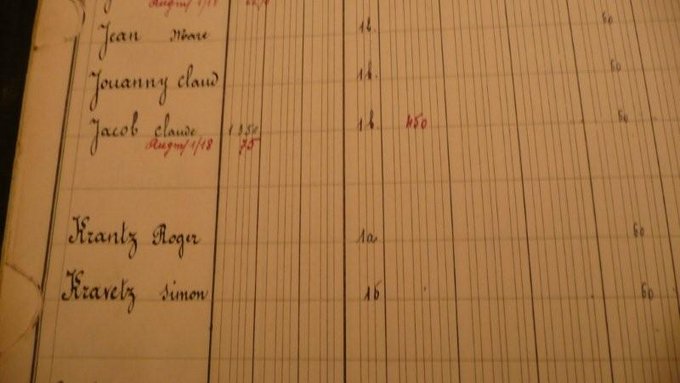 Augm/ 1/18
Jean Marc 1b. 60
Jouanny Claud 1b. 60
Jacob Claude 1 350 1b 450 60
Augm/ 1/18 75
Krantz Roger 1a 60
Kravetz Simon 1b 60